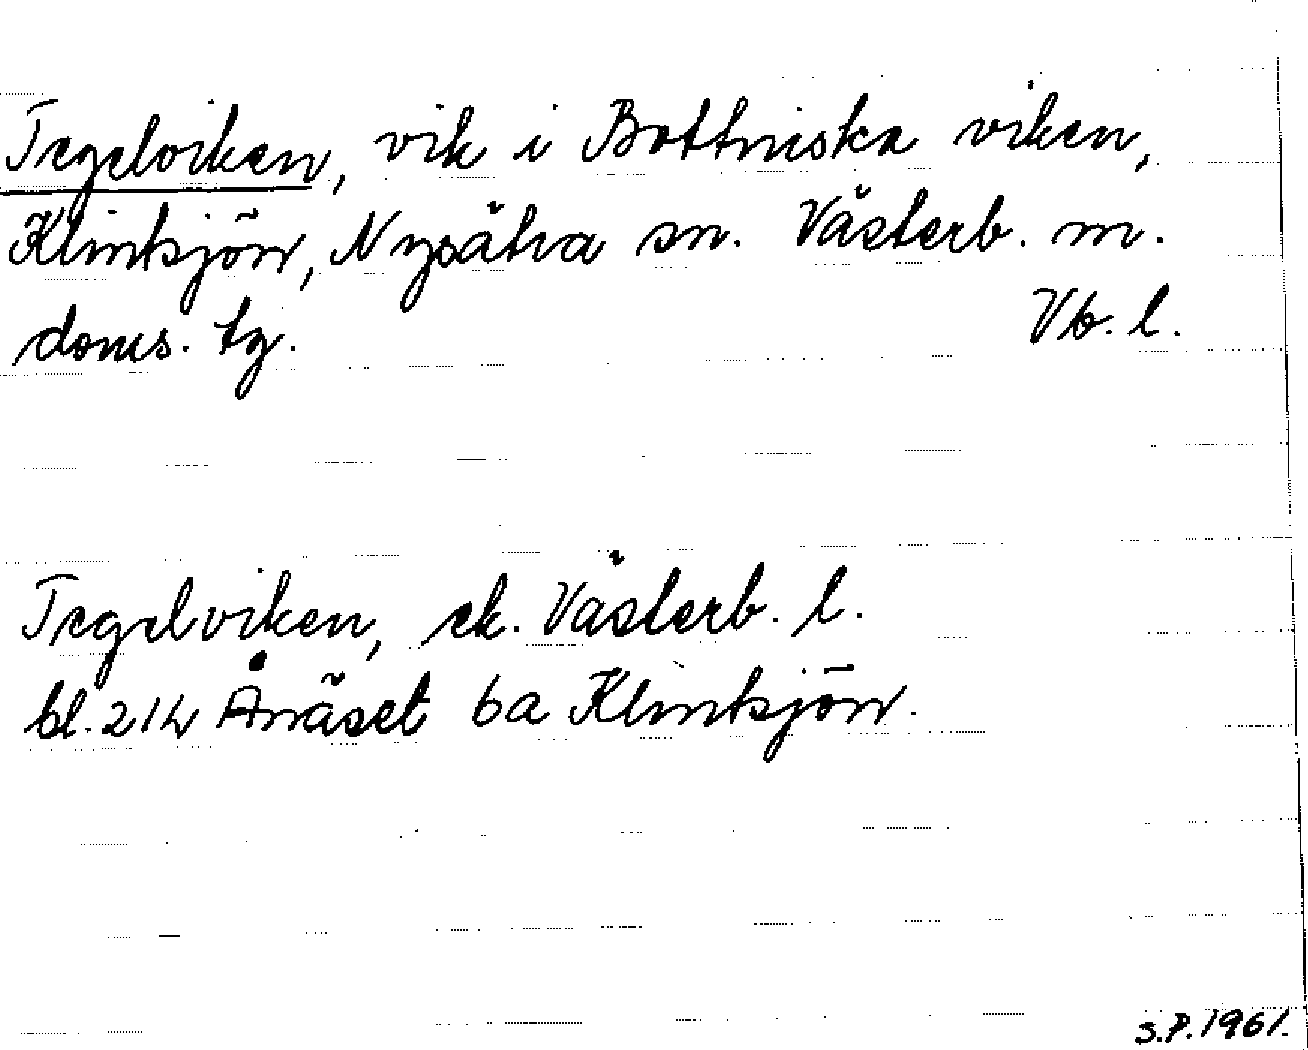 Tegelviken, vik i Bottniska viken,
Klintsjön, Nysätra sn. Västerb. m.
doms. tg. Vb. l.
Tegelviken, ek. Västerb. l.
bl. 21h Ånäset 6a Klintsjön.
S.P. 1961.